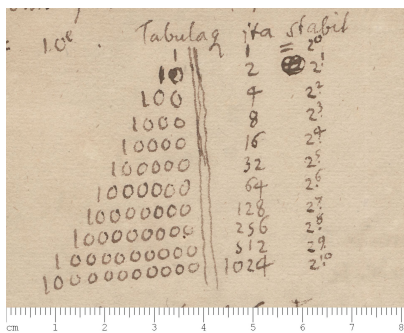 = 10e. Tabula ita stabit
1 1 = 2⁰
10 2 2¹
100 4 2²
1000 8 2³
10000 16 2⁴
100000 32 2⁵
1000000 64 2⁶
10000000 128 2⁷
100000000 256 2⁸
1000000000 512 2⁹
10000000000 1024 2¹⁰
cm 1 2 3 4 5 6 7 8